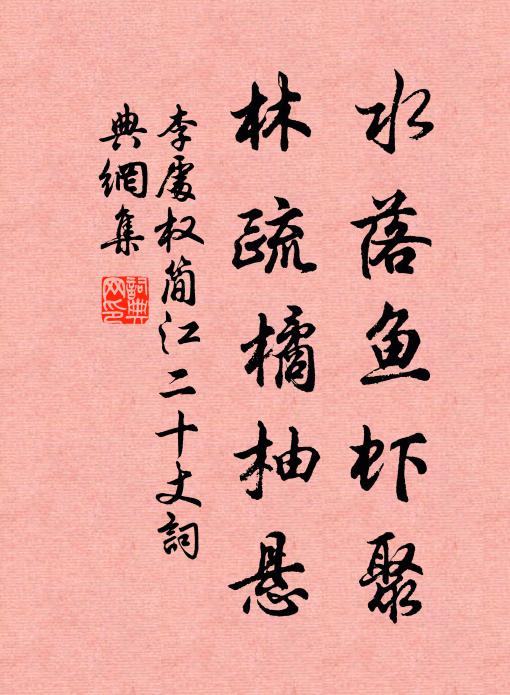 水落鱼虾聚
林疏橘柚悬
李处权简江二十丈詞
典網集
詞典网印